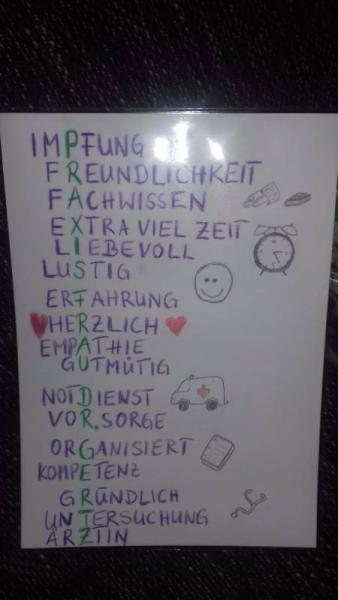 IMPFUNG
FREUNDLICHKEIT
FACHWISSEN
EXTRA VIEL ZEIT
LIEBEVOLL
LUSTIG
ERFAHRUNG
HERZLICH
EMPATHIE
GUTMÜTIG
NOTDIENST
VOR.SORGE
ORGANISIERT
KOMPETENZ
GRÜNDLICH
UNTERSUCHUNG
ÄRZTIN